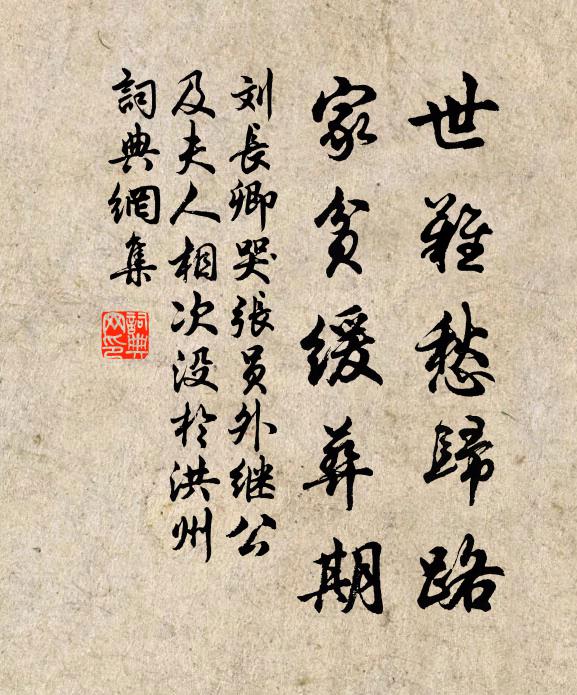 世難愁歸路
家貧緩葬期
刘長卿哭張员外继公
及夫人相次没於洪州
詞典網集
詞典
网印